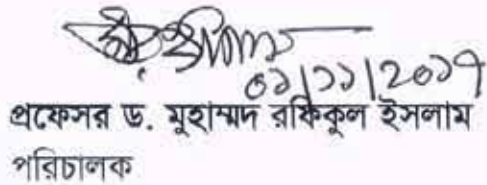 ০১/১১/২০১৭
প্রফেসর ড. মুহাম্মদ রফিকুল ইসলাম
পরিচালক